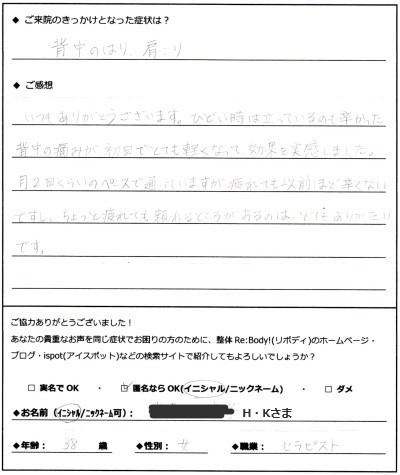 ◆ ご来院のきっかけとなった症状は？
背中のはり、肩こり
◆ ご感想
いつもありがとうございます。ひどい時は立っているのも辛かった
背中の痛みが初回でとても軽くなって効果を実感しました。
月2回くらいのペースで通っていますが疲れても以前ほど辛くない
ですし、ちょっと疲れても頼れるところがあるのは、とてもありがたい
です。
ご協力ありがとうございました！
あなたの貴重なお声を同じ症状でお困りの方のために、整体 Re:Body!(リボディ)のホームページ・
ブログ・ispot(アイスポット)などの検索サイトで紹介してもよろしいでしょうか？
□ 実名で OK ・ ☑ 匿名なら OK(イニシャル/ニックネーム) ・ □ ダメ
◆お名前（イニシャル/ニックネーム可）： H・Kさま
◆年齢： 38 歳 ◆性別： 女 ◆職業： セラピスト